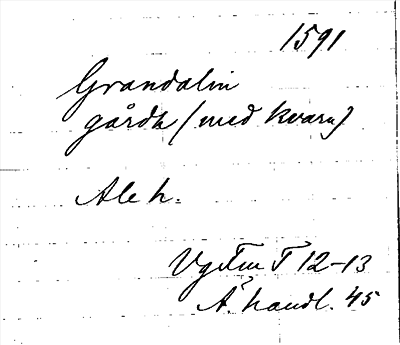 1591
Grandalin
gårdh (med kvarn)
Ale h.
Vgt Fm I 12-13
Ä. handl. 45